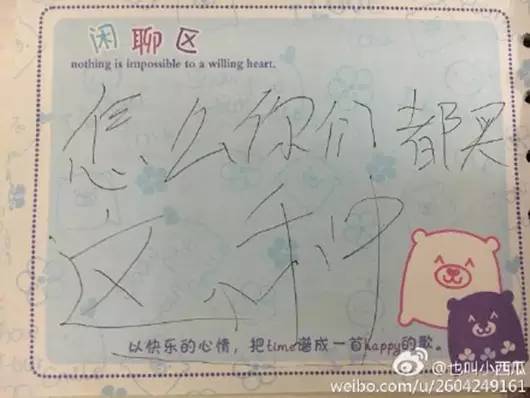 闲聊区
nothing is impossible to a willing heart.
怎么你们都买
这个种
以快乐的心情，把time谱成一首happy的歌。
@也叫小西瓜
weibo.com/u/2604249161